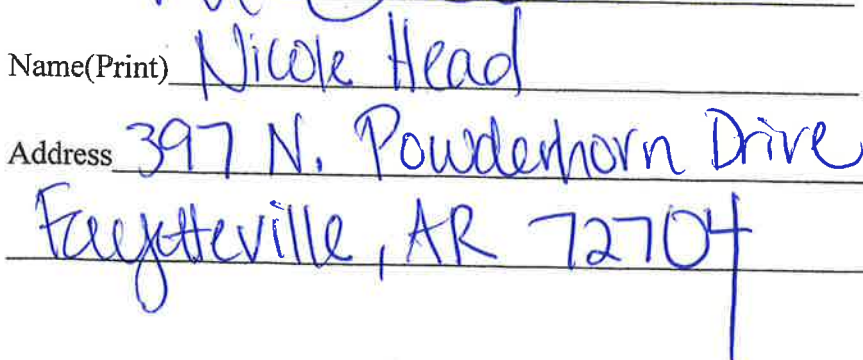 Name(Print) Nicole Head
Address 397 N. Powderhorn Drive
Fayetteville, AR 72704